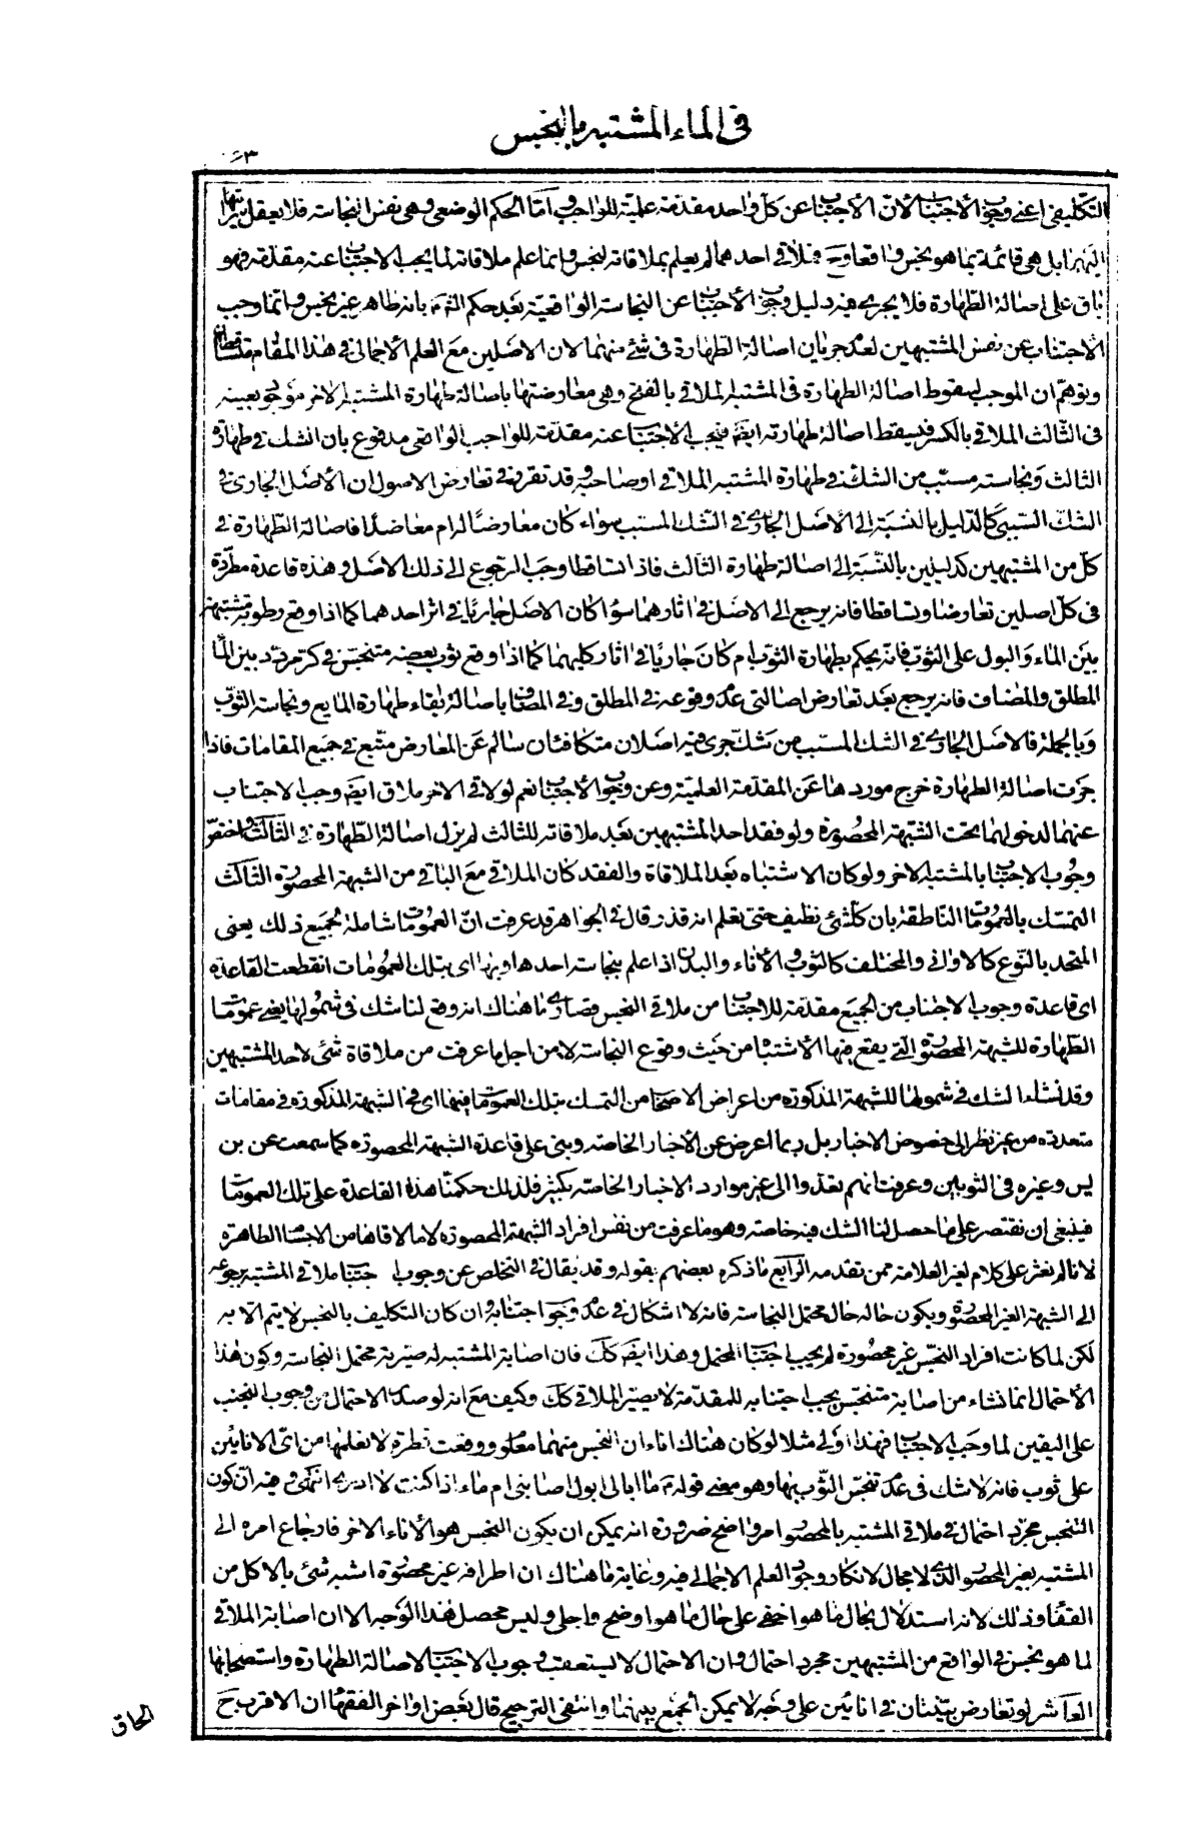 فى الماء المشتبه بالنجس
التكليفى اعنى وجوب الاجتناب لان الاجتناب عن كل واحد مقدمة علمية للواجب واما الحكم الوضعى وهى نفس النجاسة فلا يعقل سرايتها
اليهما بل هى قائمة بما هو نجس واقعا وح فملاقى احدهما لم يعلم بملاقاته لنجس وانما علم ملاقاته لما يجب الاجتناب عنه مقدمة فهو
باق على اصالة الطهارة فلا يجرى فيه دليل وجوب الاجتناب عن النجاسة الواقعية بعد حكم الشرع بانه طاهر غير نجس وانما وجب
الاجتناب عن نفس المشتبهين لعدم جريان اصالة الطهارة فى شئ منهما لان الاصلين مع العلم الاجمالى فى هذا المقام متساقطان
وتوهم ان الموجب لسقوط اصالة الطهارة فى المشتبه الملاقى بالفتح وهى معارضتها باصالة طهارة المشتبه الاخر موجود بعينه
فى الثالث الملاقى بالكسر فيسقط اصالة طهارته ايضا فيجب الاجتناب عنه مقدمة للواجب الواقعى مدفوع بان الشك فى طهارة
الثالث ونجاسته مسبب من الشك فى طهارة المشتبه الملاقى او صاحبه وقد تقرر فى تعارض الاصول ان الاصل الجارى فى
الشك السببى كالدليل بالنسبة الى الاصل الجارى فى الشك المسبب سواء كان معارضا له ام معاضدا فاصالة الطهارة فى
كل من المشتبهين كدليلين بالنسبة الى اصالة طهارة الثالث فاذا تساقطا وجب الرجوع الى ذلك الاصل وهذه قاعدة مطردة
فى كل اصلين تعارضا وتساقطا فانه يرجع الى الاصل فى اثارهما سواء كان الاصل جاريا فى اثر احدهما كما اذا وقع رطوبة مشتبهة
بين الماء والبول على الثوب فانه يحكم بطهارة الثوب ام كان جاريا فى اثار كليهما كما اذا وقع ثوب بعضه متنجس فى كر مردد بين الماء
المطلق والمضاف فانه يرجع بعد تعارض اصالتى عدم وقوعه فى المطلق وفى المضاف باصالة بقاء طهارة المايع ونجاسة الثوب
وبالجملة فالاصل الجارى فى الشك المسبب من شك جرى فيه اصلان متكافئان سالم عن المعارض متبع فى جميع المقامات فاذا
جرت اصالة الطهارة خرج موردها عن المقدمة العلمية وعن وجوب الاجتناب نعم لو لاقى الاخر ملاق ايضا وجب الاجتناب
عنهما لدخولهما تحت الشبهة المحصورة ولو فقد احد المشتبهين بعد ملاقاته للثالث لم يزل اصالة الطهارة فى الثالث واختص
وجوب الاجتناب بالمشتبه الاخر ولو كان الاشتباه بعد الملاقاة والفقد كان الملاقى مع الباقى من الشبهة المحصورة الثالث
التمسك بالعمومات الناطقة بان كل شئ نظيف حتى تعلم انه قذر قال فى الجواهر قد عرفت ان العمومات شاملة لجميع ذلك يعنى
المتحد بالنوع كالاوانى والمختلف كالثوب والاناء والبدن اذا علم بنجاسة احدها وبها اى بتلك العمومات انقطعت القاعدة
اى قاعدة وجوب الاجتناب من الجميع مقدمة للاجتناب من ملاقى النجس فقصارى ما هناك انه وقع لنا شك فى شمولها يعنى عمومات
الطهارة للشبهة المحصورة التى يقع فيها الاشتباه من حيث وقوع النجاسة لا من اجل ما عرفت من ملاقاة شئ لاحد المشتبهين
وقد نشاء الشك فى شمولها للشبهة المذكورة من اعراض الاصحاب من التمسك بتلك العمومات فيها اى فى الشبهة المذكورة فى مقامات
متعددة من غير نظر الى خصوص الاخبار بل ربما اعرض عن الاخبار الخاصة وبنى على قاعدة الشبهة المحصورة كما سمعت عن بن
يس وغيره فى الثوبين وعرفت انهم تعدوا الى غير موارد الاخبار الخاصة بكثير فلذلك حكمنا هذه القاعدة على تلك العمومات
فينبغى ان نقتصر على ما حصل لنا الشك فيه خاصة وهو ما عرفت من نفس افراد الشبهة المحصورة لا ما لاقاها من الاجسام الطاهرة
لانا لم نعثر على كلام لغير العلامة ممن تقدمه الرابع ما ذكره بعضهم بقوله وقد يقال فى التخلص عن وجوب اجتناب ملاقى المشتبه برجوعه
الى الشبهة الغير المحصورة ويكون حاله حال محتمل النجاسة فانه لا اشكال فى عدم وجوب اجتنابه وان كان التكليف بالنجس لا يتم الا به
لكن لما كانت افراد النجس غير محصورة لم يجب اجتناب المحتمل وهذا ايضا كك فان اصابة المشتبه له صيرته محتمل النجاسة وكون هذا
الاحتمال انما نشاء من اصابة متنجس يجب اجتنابه للمقدمة لا يصير الملاقى كك وكيف مع انه لو صدق الاحتمال من وجوب التجنب
على اليقين لما وجب الاجتناب فهذا اولى مثلا لو كان هناك اناءان النجس منهما معلوم ووقعت قطرة لا نعلمها من اى الانائين
على ثوب فانه لا شك فى عدم تنجس الثوب بها وهو معنى قوله ع ما ابالى ابول اصابنى ام ماء اذا كنت لا ادرى انتهى وفيه ان كون
التنجس مجرد احتمال فى ملاقى المشتبه بالمحصور امر واضح ضرورة انه يمكن ان يكون النجس هو الاناء الاخر فارجاع امره الى
المشتبه بغير المحصور الذى لا مجال لانكار وجود العلم الاجمالى فيه وغاية ما هناك ان اطرافه غير محصورة اشبه شئ بالاكل من
القفا وذلك لانه استدلال بحال ما هو اخفى على حال ما هو اوضح واجلى وليس محصل هذا الوجه الا ان اصابة الملاقى
لما هو نجس فى الواقع من المشتبهين مجرد احتمال وان الاحتمال لا يستعقب وجوب الاجتناب لاصالة الطهارة واستصحابها
العاشر لو تعارض بينتان فى انائين على وجه لا يمكن الجمع بينهما وانتفى الترجيح قال بعض اواخر الفقهاء ان الاقرب ح
الحاق